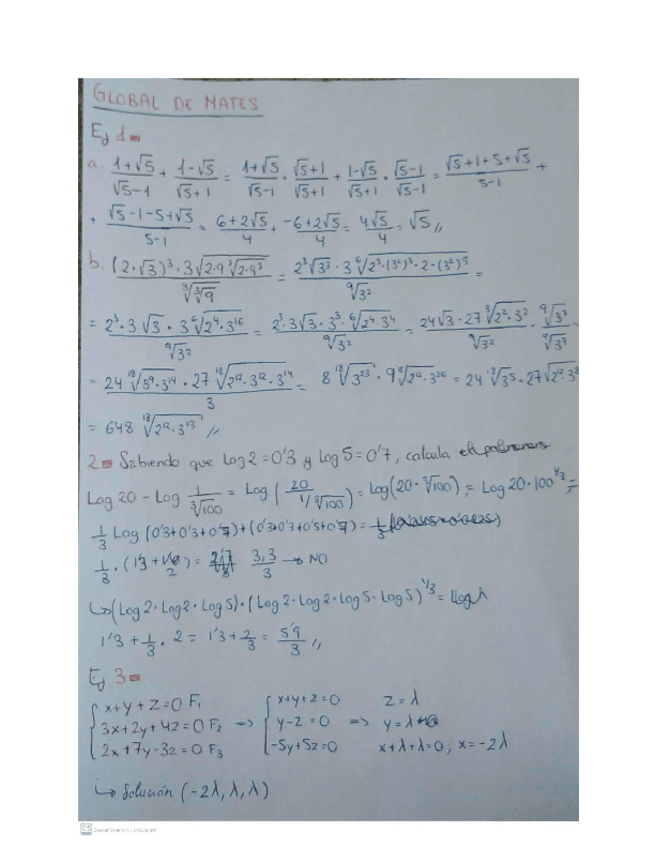 GLOBAL DE MATES
Ej 1-
a. (1+√5)/(√5-1) + (1-√5)/(√5+1) = (1+√5)/(√5-1) · (√5+1)/(√5+1) + (1-√5)/(√5+1) · (√5-1)/(√5-1) = (√5+1+5+√5)/(5-1) +
+ (√5-1-5+√5)/(5-1) = (6+2√5)/4 + (-6+2√5)/4 = 4√5/4 = √5 //
b. ((2·√3)³ · 3√(2·9 ∛(2·9⁵)))/∛(∛9) = (2³√3³ · 3 ⁶√(2³·(3²)³·2·(3²)⁵))/⁹√3² =
= (2³·3√3 · 3 ⁶√(2⁴·3¹⁶))/⁹√3² = (2³·3√3·3³·⁶√(2⁴·3⁴))/⁹√3² = (24√3·27 ∛(2²·3²))/⁹√3² · ⁹√3⁷/⁹√3⁷ =
= (24 ¹⁸√(3⁹·3¹⁴) · 27 ¹⁸√(2¹²·3¹²·3¹⁴))/3
= 648 ¹⁸√(2¹²·3¹³) //
2- Sabiendo que Log 2 = 0'3 y Log 5 = 0'7, calcula
Log 20 - Log 1/∛100 = Log (20/(1/∛100)) = Log(20·∛100) = Log 20·100^(1/3) =
1/3 Log (0'3+0'3+0'7)+(0'3+0'3+0'5+0'7) = 1/3
3,3/3 → NO
↳ (Log 2 · Log 2 · Log 5) · (Log 2 · Log 2 · Log 5 · Log 5)^(1/3) =
1'3 + 1/3 · 2 = 1'3 + 2/3 = 5'9/3 //
Ej 3-
{ x+y+z=0 F₁ { x+y+z=0 z=λ
{ 3x+2y+4z=0 F₂ => { y-z=0 => y=λ
{ 2x+7y-3z=0 F₃ { -5y+5z=0 x+λ+λ=0; x=-2λ
↳ Solución (-2λ, λ, λ)